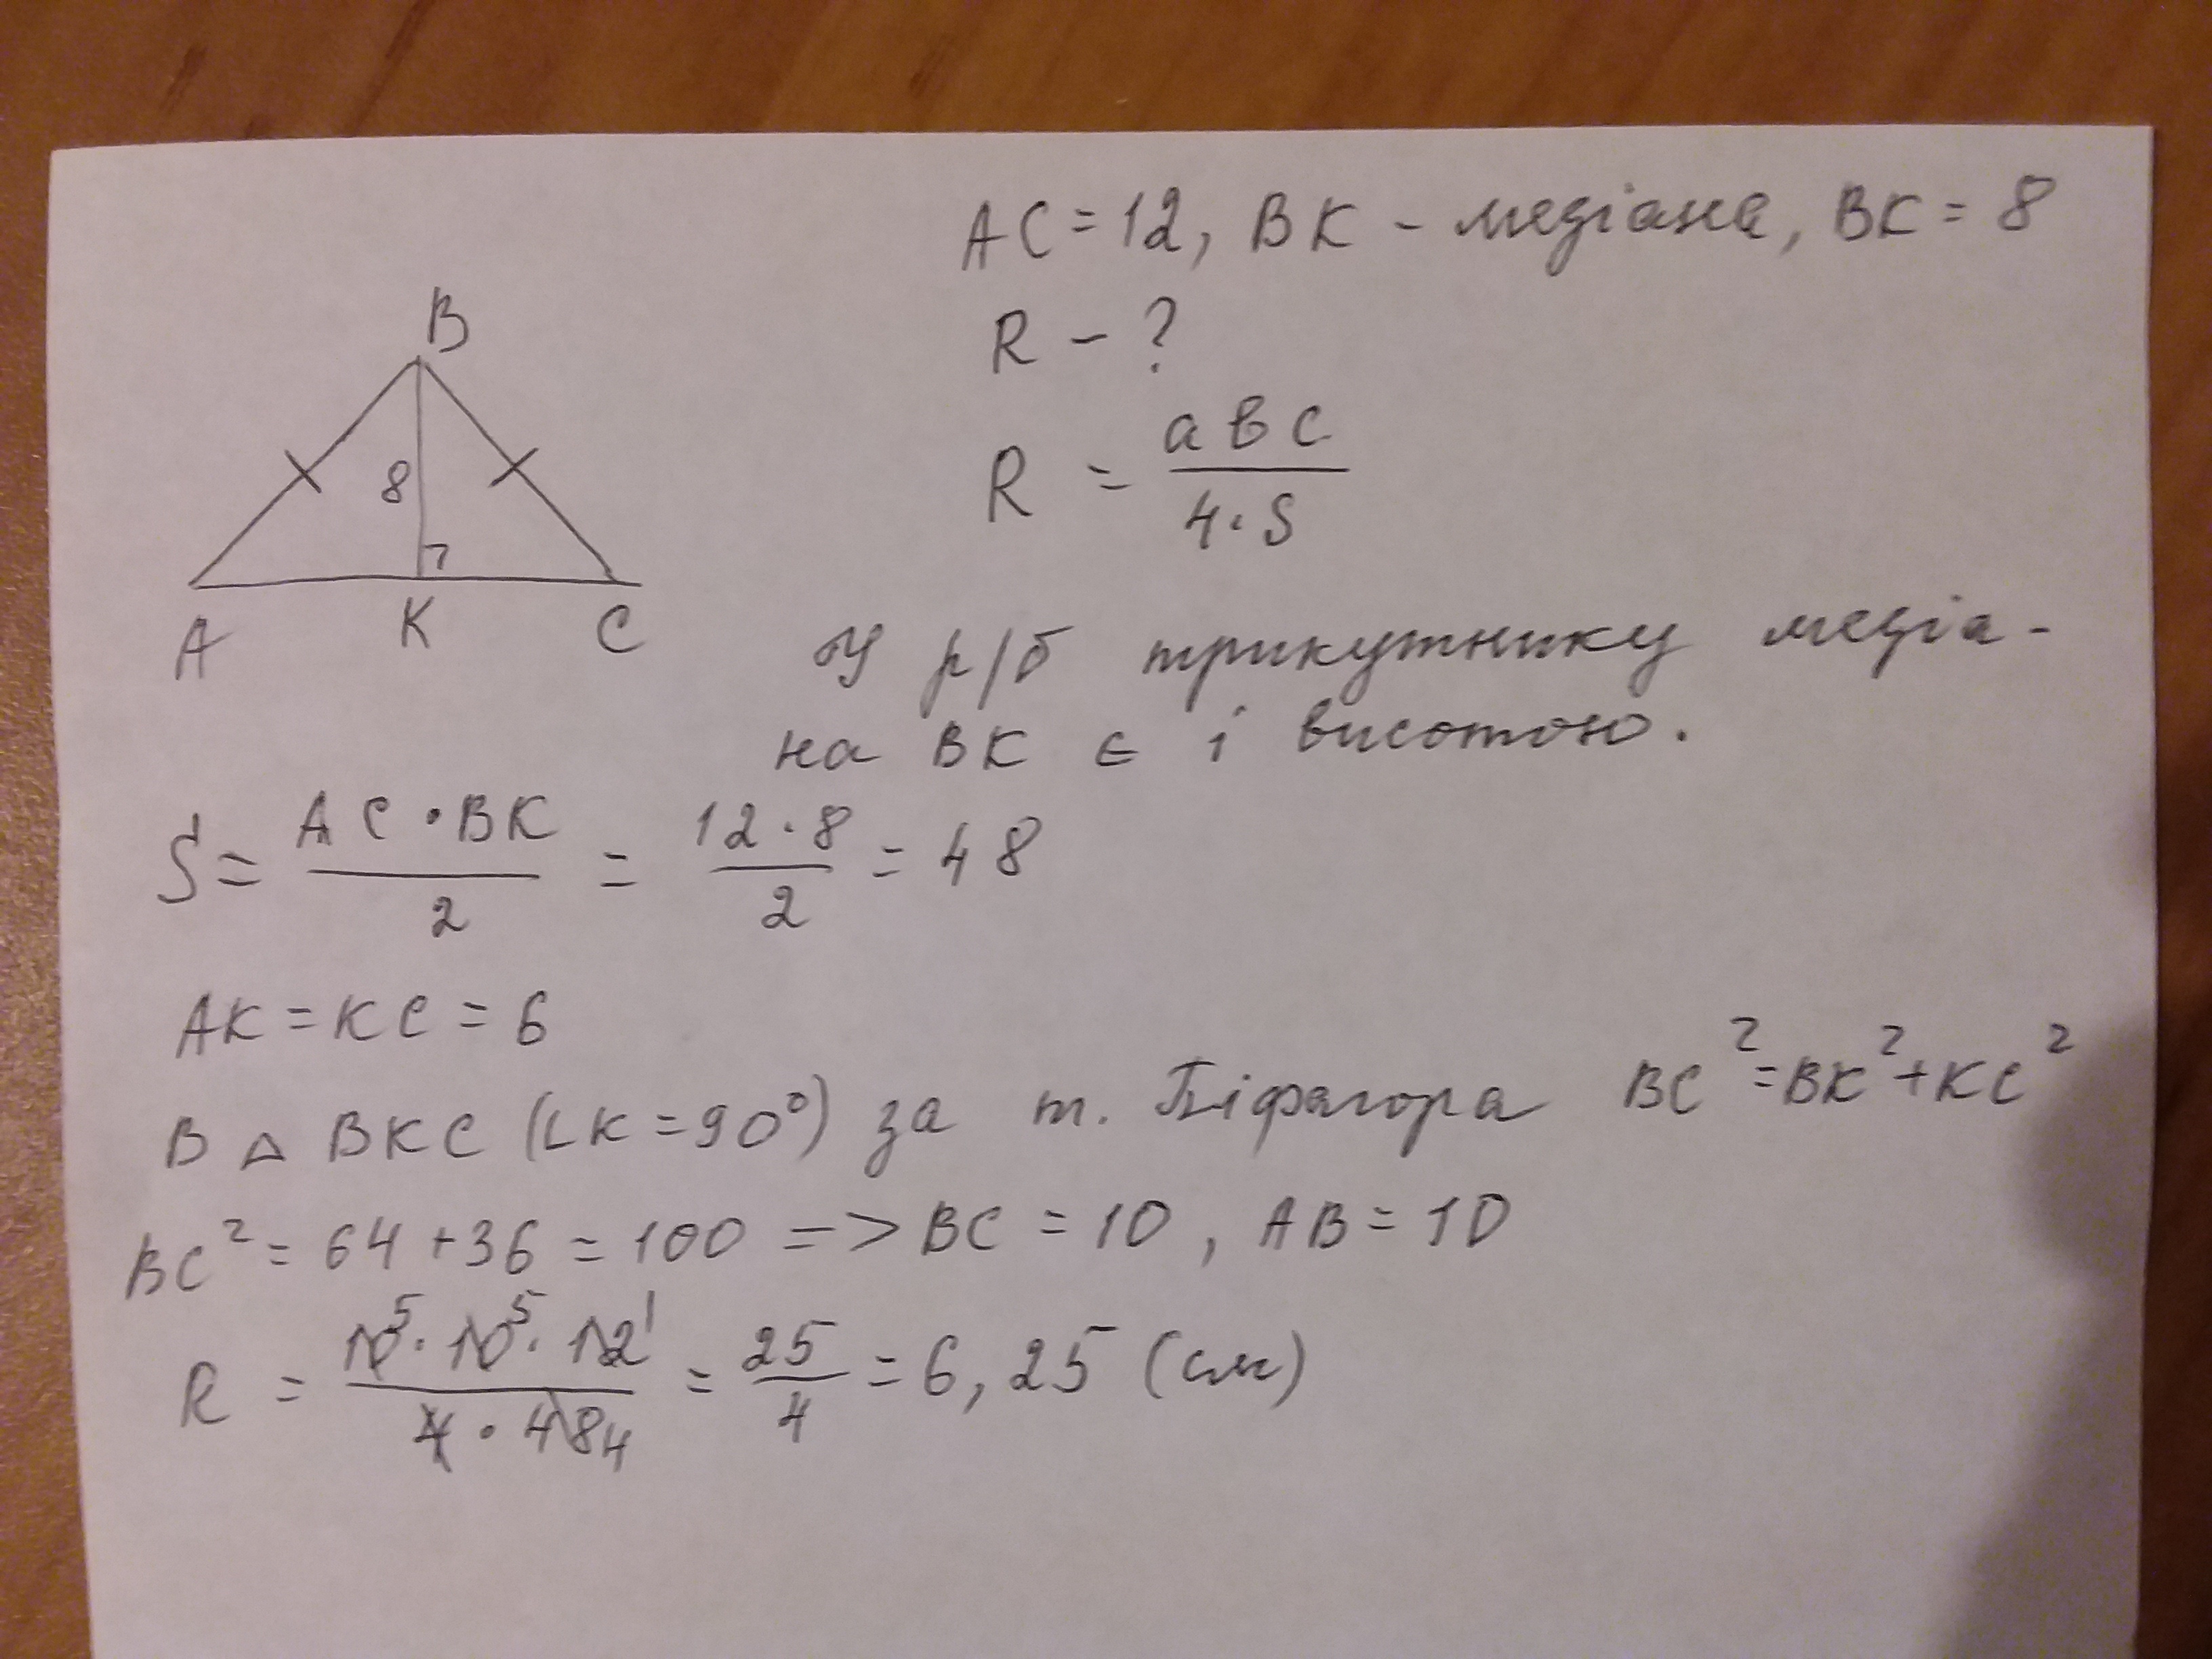 AC = 12, BK - медіана, BK = 8
R - ?
R = авс / 4·S
B
8
A K C
У р/б трикутнику медіа-
на BK є і висотою.
S = AC·BK / 2 = 12·8 / 2 = 48
AK = KC = 6
В △ BKC (∠K = 90°) за т. Піфагора BC² = BK² + KC²
BC² = 64 + 36 = 100 => BC = 10, AB = 10
R = 10⁵·10⁵·12¹ / 4·48₄ = 25 / 4 = 6,25 (см)